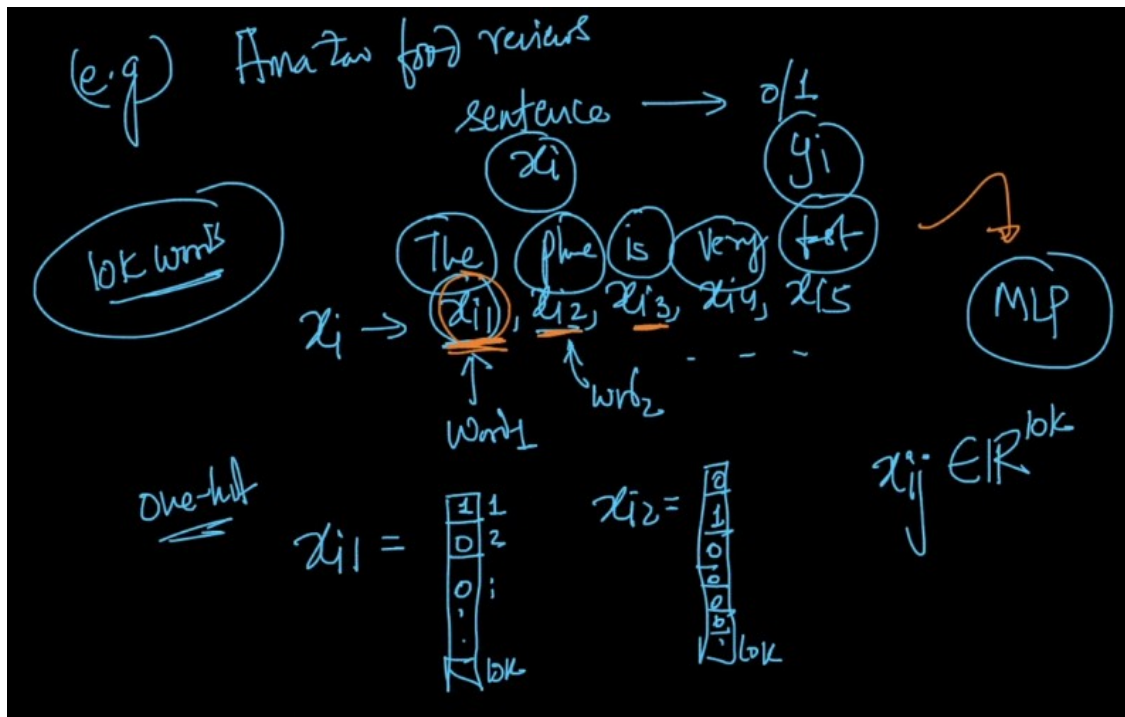 (e.g) Amazon food reviews
sentence → 0/1
xi yi
10K words
The phne is very fast
xi → xi1, xi2, xi3, xi4, xi5
MLP
- - -
word1
wrd2
xij ∈ ℝ^10K
one-hot
xi1 =
1 1
0 2
0 ⋮
10K
xi2 =
0
1
0
0
0
0
10K